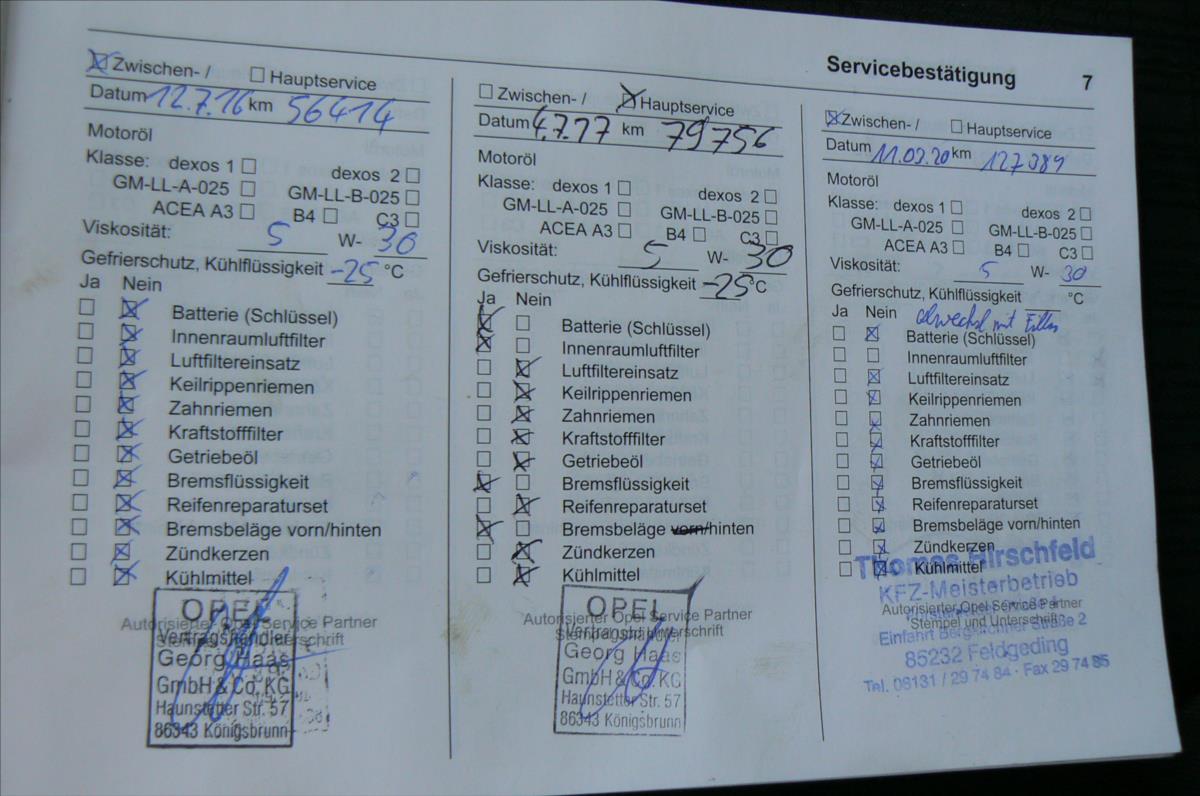 Servicebestätigung 7
Zwischen- / Hauptservice
Datum 12.7.16 km 56414
Motoröl
Klasse: dexos 1 dexos 2
GM-LL-A-025 GM-LL-B-025
ACEA A3 B4 C3
Viskosität: 5 W- 30
Gefrierschutz, Kühlflüssigkeit -25 °C
Ja Nein
Batterie (Schlüssel)
Innenraumluftfilter
Luftfiltereinsatz
Keilrippenriemen
Zahnriemen
Kraftstofffilter
Getriebeöl
Bremsflüssigkeit
Reifenreparaturset
Bremsbeläge vorn/hinten
Zündkerzen
Kühlmittel
Autorisierter Opel Service Partner
Stempel und Unterschrift
OPEL
Vertragshändler
Georg Haas
GmbH & Co. KG
Haunstetter Str. 57
86343 Königsbrunn
Zwischen- / Hauptservice
Datum 4.7.17 km 79756
Motoröl
Klasse: dexos 1 dexos 2
GM-LL-A-025 GM-LL-B-025
ACEA A3 B4 C3
Viskosität: 5 W- 30
Gefrierschutz, Kühlflüssigkeit -25 °C
Ja Nein
Batterie (Schlüssel)
Innenraumluftfilter
Luftfiltereinsatz
Keilrippenriemen
Zahnriemen
Kraftstofffilter
Getriebeöl
Bremsflüssigkeit
Reifenreparaturset
Bremsbeläge vorn/hinten
Zündkerzen
Kühlmittel
Autorisierter Opel Service Partner
Stempel und Unterschrift
OPEL
Vertragshändler
Georg Haas
GmbH & Co. KG
Haunstetter Str. 57
86343 Königsbrunn
Zwischen- / Hauptservice
Datum 11.03.20 km 127389
Motoröl
Klasse: dexos 1 dexos 2
GM-LL-A-025 GM-LL-B-025
ACEA A3 B4 C3
Viskosität: 5 W- 30
Gefrierschutz, Kühlflüssigkeit °C
Ja Nein mit
Batterie (Schlüssel)
Innenraumluftfilter
Luftfiltereinsatz
Keilrippenriemen
Zahnriemen
Kraftstofffilter
Getriebeöl
Bremsflüssigkeit
Reifenreparaturset
Bremsbeläge vorn/hinten
Zündkerzen
Kühlmittel
Thomas Hirschfeld
KFZ-Meisterbetrieb
Autorisierter Opel Service Partner
Stempel und Unterschrift
Einfahrt Bergkirchner Straße 2
85232 Feldgeding
Tel. 08131 / 29 74 84 · Fax 29 74 85